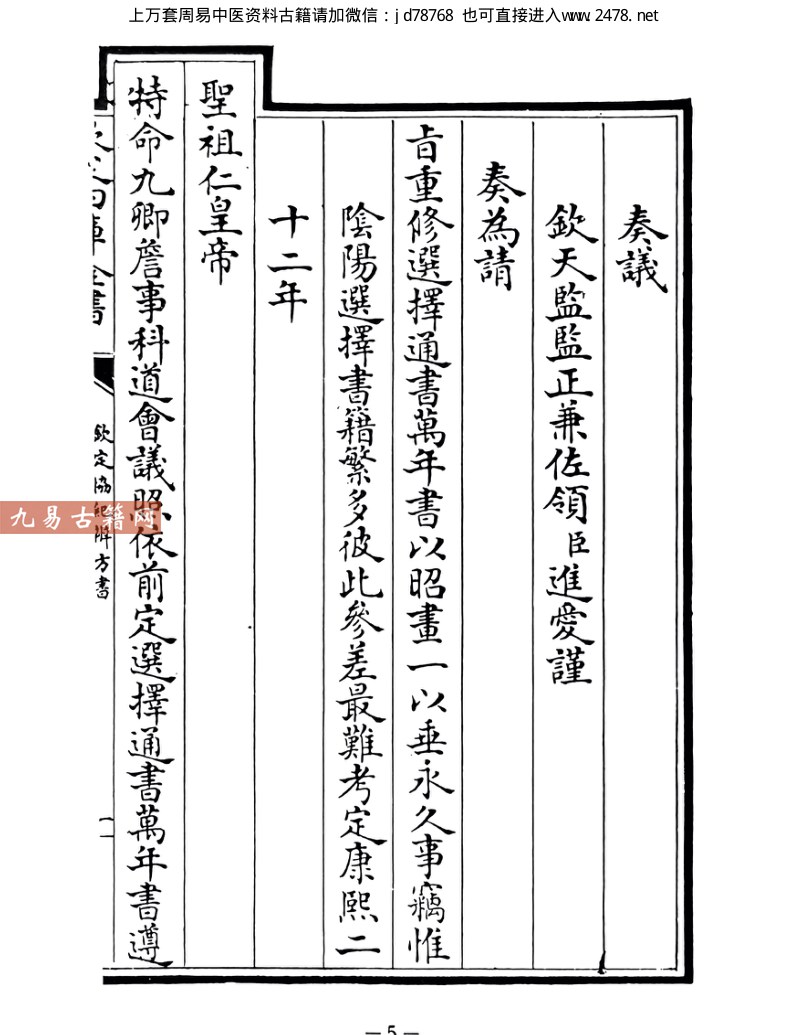 上万套周易中医资料古籍请加微信：jd78768 也可直接进入www.2478.net
奏議
欽天監監正兼佐領臣進愛謹
奏為請
旨重修選擇通書萬年書以昭畫一以垂永久事竊惟
陰陽選擇書籍繁多彼此參差最難考定康熙二
十二年
聖祖仁皇帝
特命九卿詹事科道會議照依前定選擇通書萬年書遵
四庫全書
欽定協紀辨方書
一
九易古籍网
— 5 —